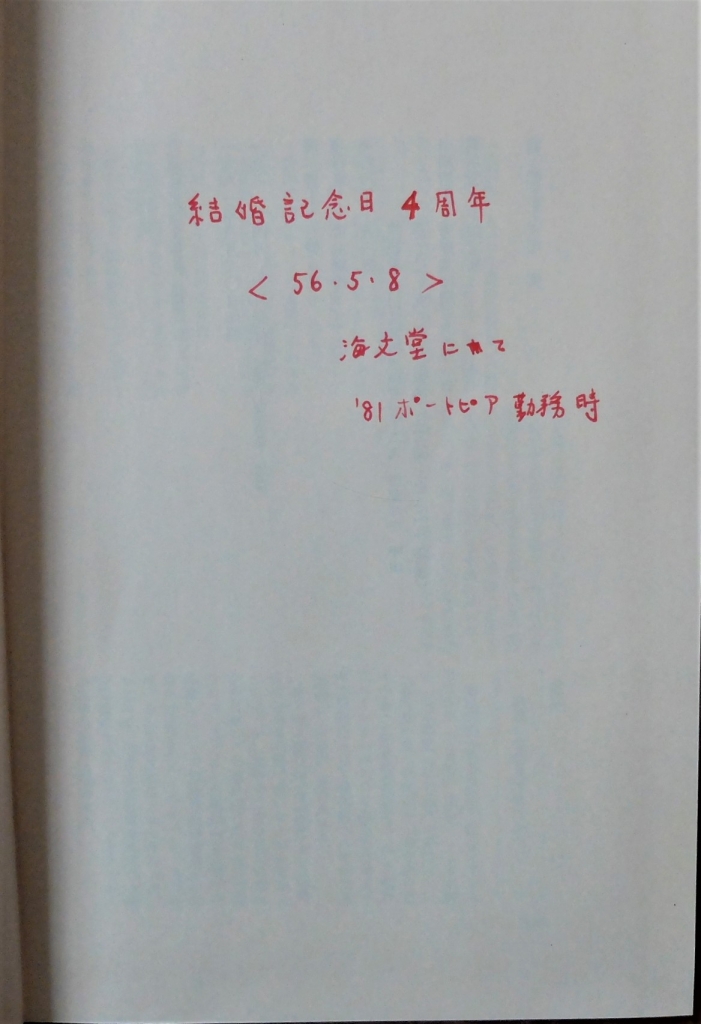 結婚記念日4周年
< 56.5.8 >
海文堂にて
'81 ポートピア勤務時